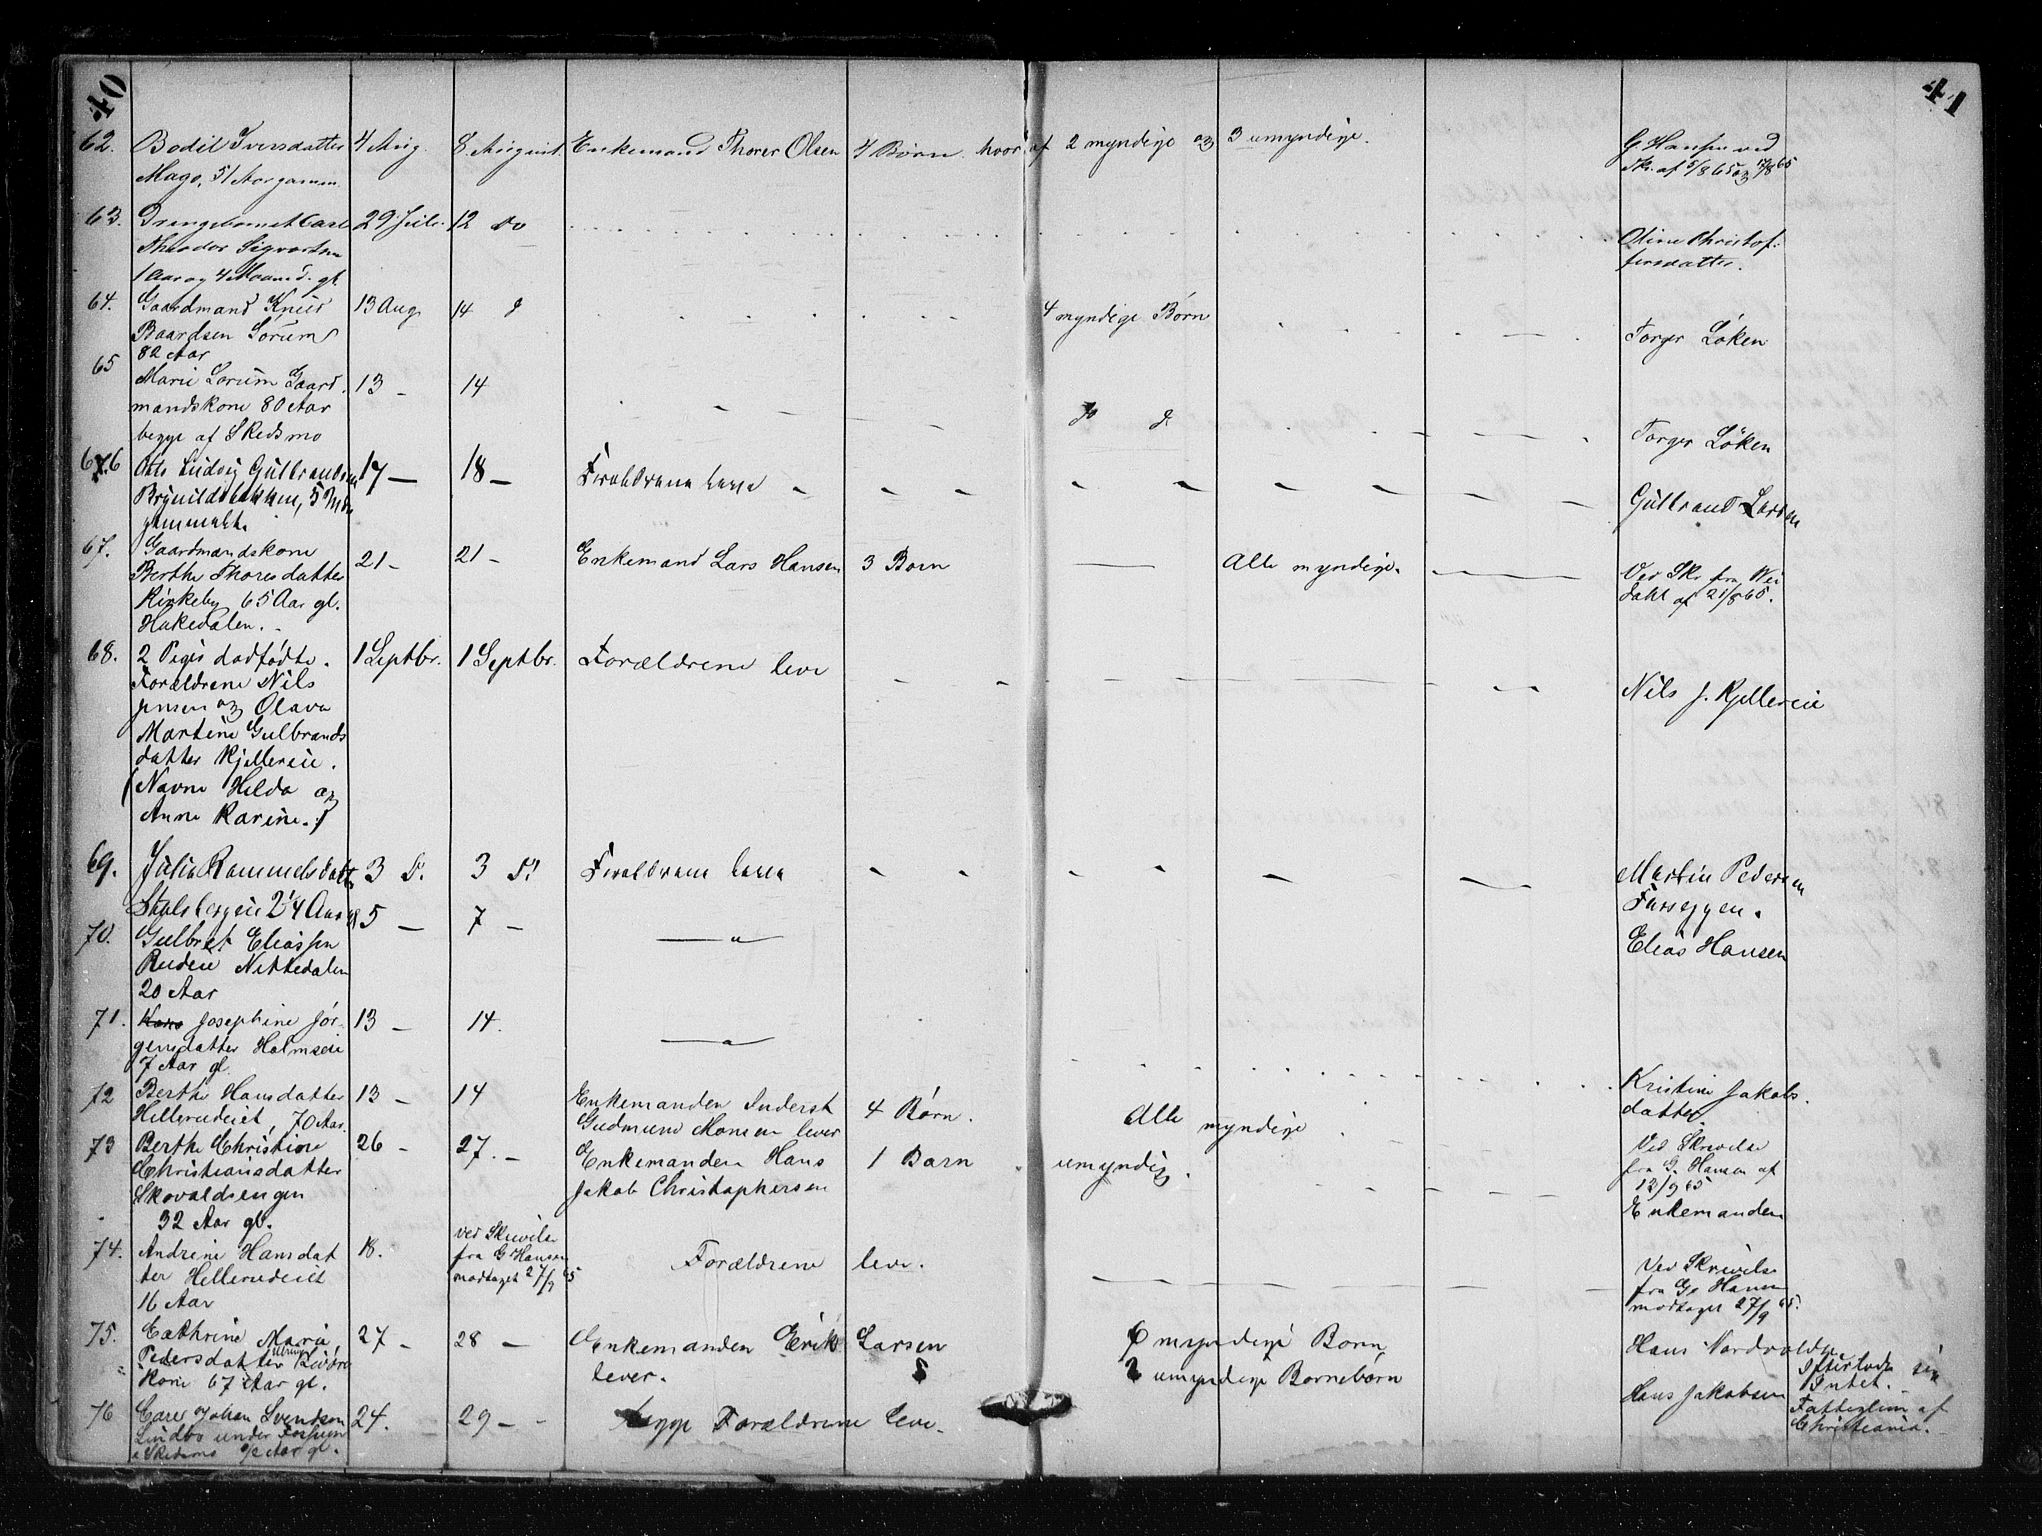 40
41
62. Bodil Iversdatter 4 Aug. 8. August. Enkemand Thorer Olsen 4 Børn hvor af 2 myndige og 3 umyndige. G Hansen ved
Mago, 51 Aar gammel Skr. af 5/8 65 og 12/8 65
63. Drengebarnet Carl 29 Juli 12 do
Theodor Sigvartsen Oline Christof:
1 Aar og 4 Maaned. gl. fersdatter.
64. Gaardmand Knud 13 Aug. 14 d 4 myndige Børn
Baardsen Sørum Torger Løken
82 Aar
65 Marie Sørum Gaard 13 - 14
mandskone 80 Aar d d
begge af Skedsmo Torger Løken
66 Otto Ludvig Gulbrandsen 17 - 18 - Forældrene leve
Brynildsbakken, 5 Mdr Gulbrand Larsen
gammelt.
67. Gaardmandskone 21 - 21 - Enkemand Lars Hansen 3 Børn Alle myndige.
Berthe Thoresdatter Ved Skr fra Wei
Kirkeby 65 Aar gl. dahl af 21/8 65.
Hakedalen.
68. 2 Piger dødfødte. 1 Septbr. 1 Septbr. Forældrene leve
Forældrene Nils Nils J. Kjellereie
Jensen og Olava
Martine Gulbrands
datter Kjellereie.
(Navne Hilda og
Anne Karine.)
69. Julia Rammelsdatt. 3 S. 3 S. Forældrene leve Martin Pedersen
Stalsbergeie 2 1/4 Aar gl Fosseggen.
70. Gulbret Eliassen 5 - 7 - Elias Hansen
Rudeie Nittedalen
20 Aar
71. Josephine Jør- 13 - 14.
gensdatter Holmseie
7 Aar gl.
72 Berthe Hansdatter 13 - 14 Enkemanden Inderst 4 Børn. Alle myndige Kristine Jakobs-
Hellerudeiet, 70 Aar. Gudmund Monsen lever datter.
73 Berthe Christine 26 - 27. - Enkemanden Hans 1 Barn umyndig. Ved Skrivelse
Christiansdatter Jakob Christophersen fra G. Hansen af
Skovaldsengen 12/9 65
32 Aar gl. Enkemanden
74. Andrine Hansdat 18. ved Skrivelse Forældrene leve.
ter Hellerudeiet fra G Hansen Ved Skrivelse
16 Aar modtaget 27/9 65 fra G. Hansen
modtaget 27/9 65.
75. Cathrine Marie 27 - 28 - Enkemanden Erik Larsen 6 myndige Børn Hans Nordvoldsje
Pedersdatter lever. 2 umyndige Børnebørn Efterlods sig
Kone 67 Aar gl. Intet.
76 Carl Johan Svendsen 24. 29 - begge Forældrene leve. Hans Jakobsen Fattiglem af
Lindbo under Fossum Christiania.
i Skedsmo 1/2 Aar gl.